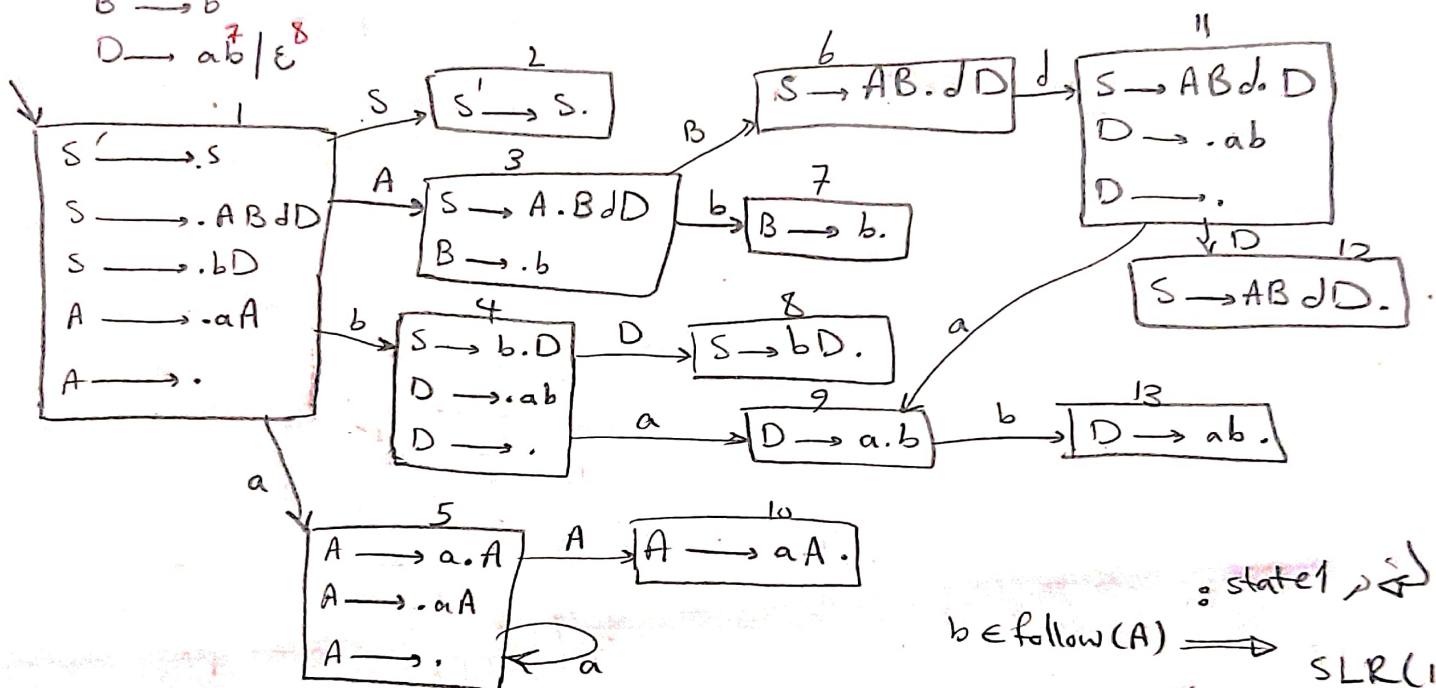 B → b
D → ab⁷ | ε⁸
1
S' → .S
S → .ABdD
S → .bD
A → .aA
A → .
S
2
S' → S.
A
3
S → A.BdD
B → .b
B
6
S → AB.dD
d
11
S → ABd.D
D → .ab
D → .
b
7
B → b.
D
12
S → ABdD.
b
4
S → b.D
D → .ab
D → .
D
8
S → bD.
a
a
9
D → a.b
b
13
D → ab.
a
5
A → a.A
A → .aA
A → .
a
A
10
A → aA.
: state1
b ∈ follow(A) ⟹
SLR(1